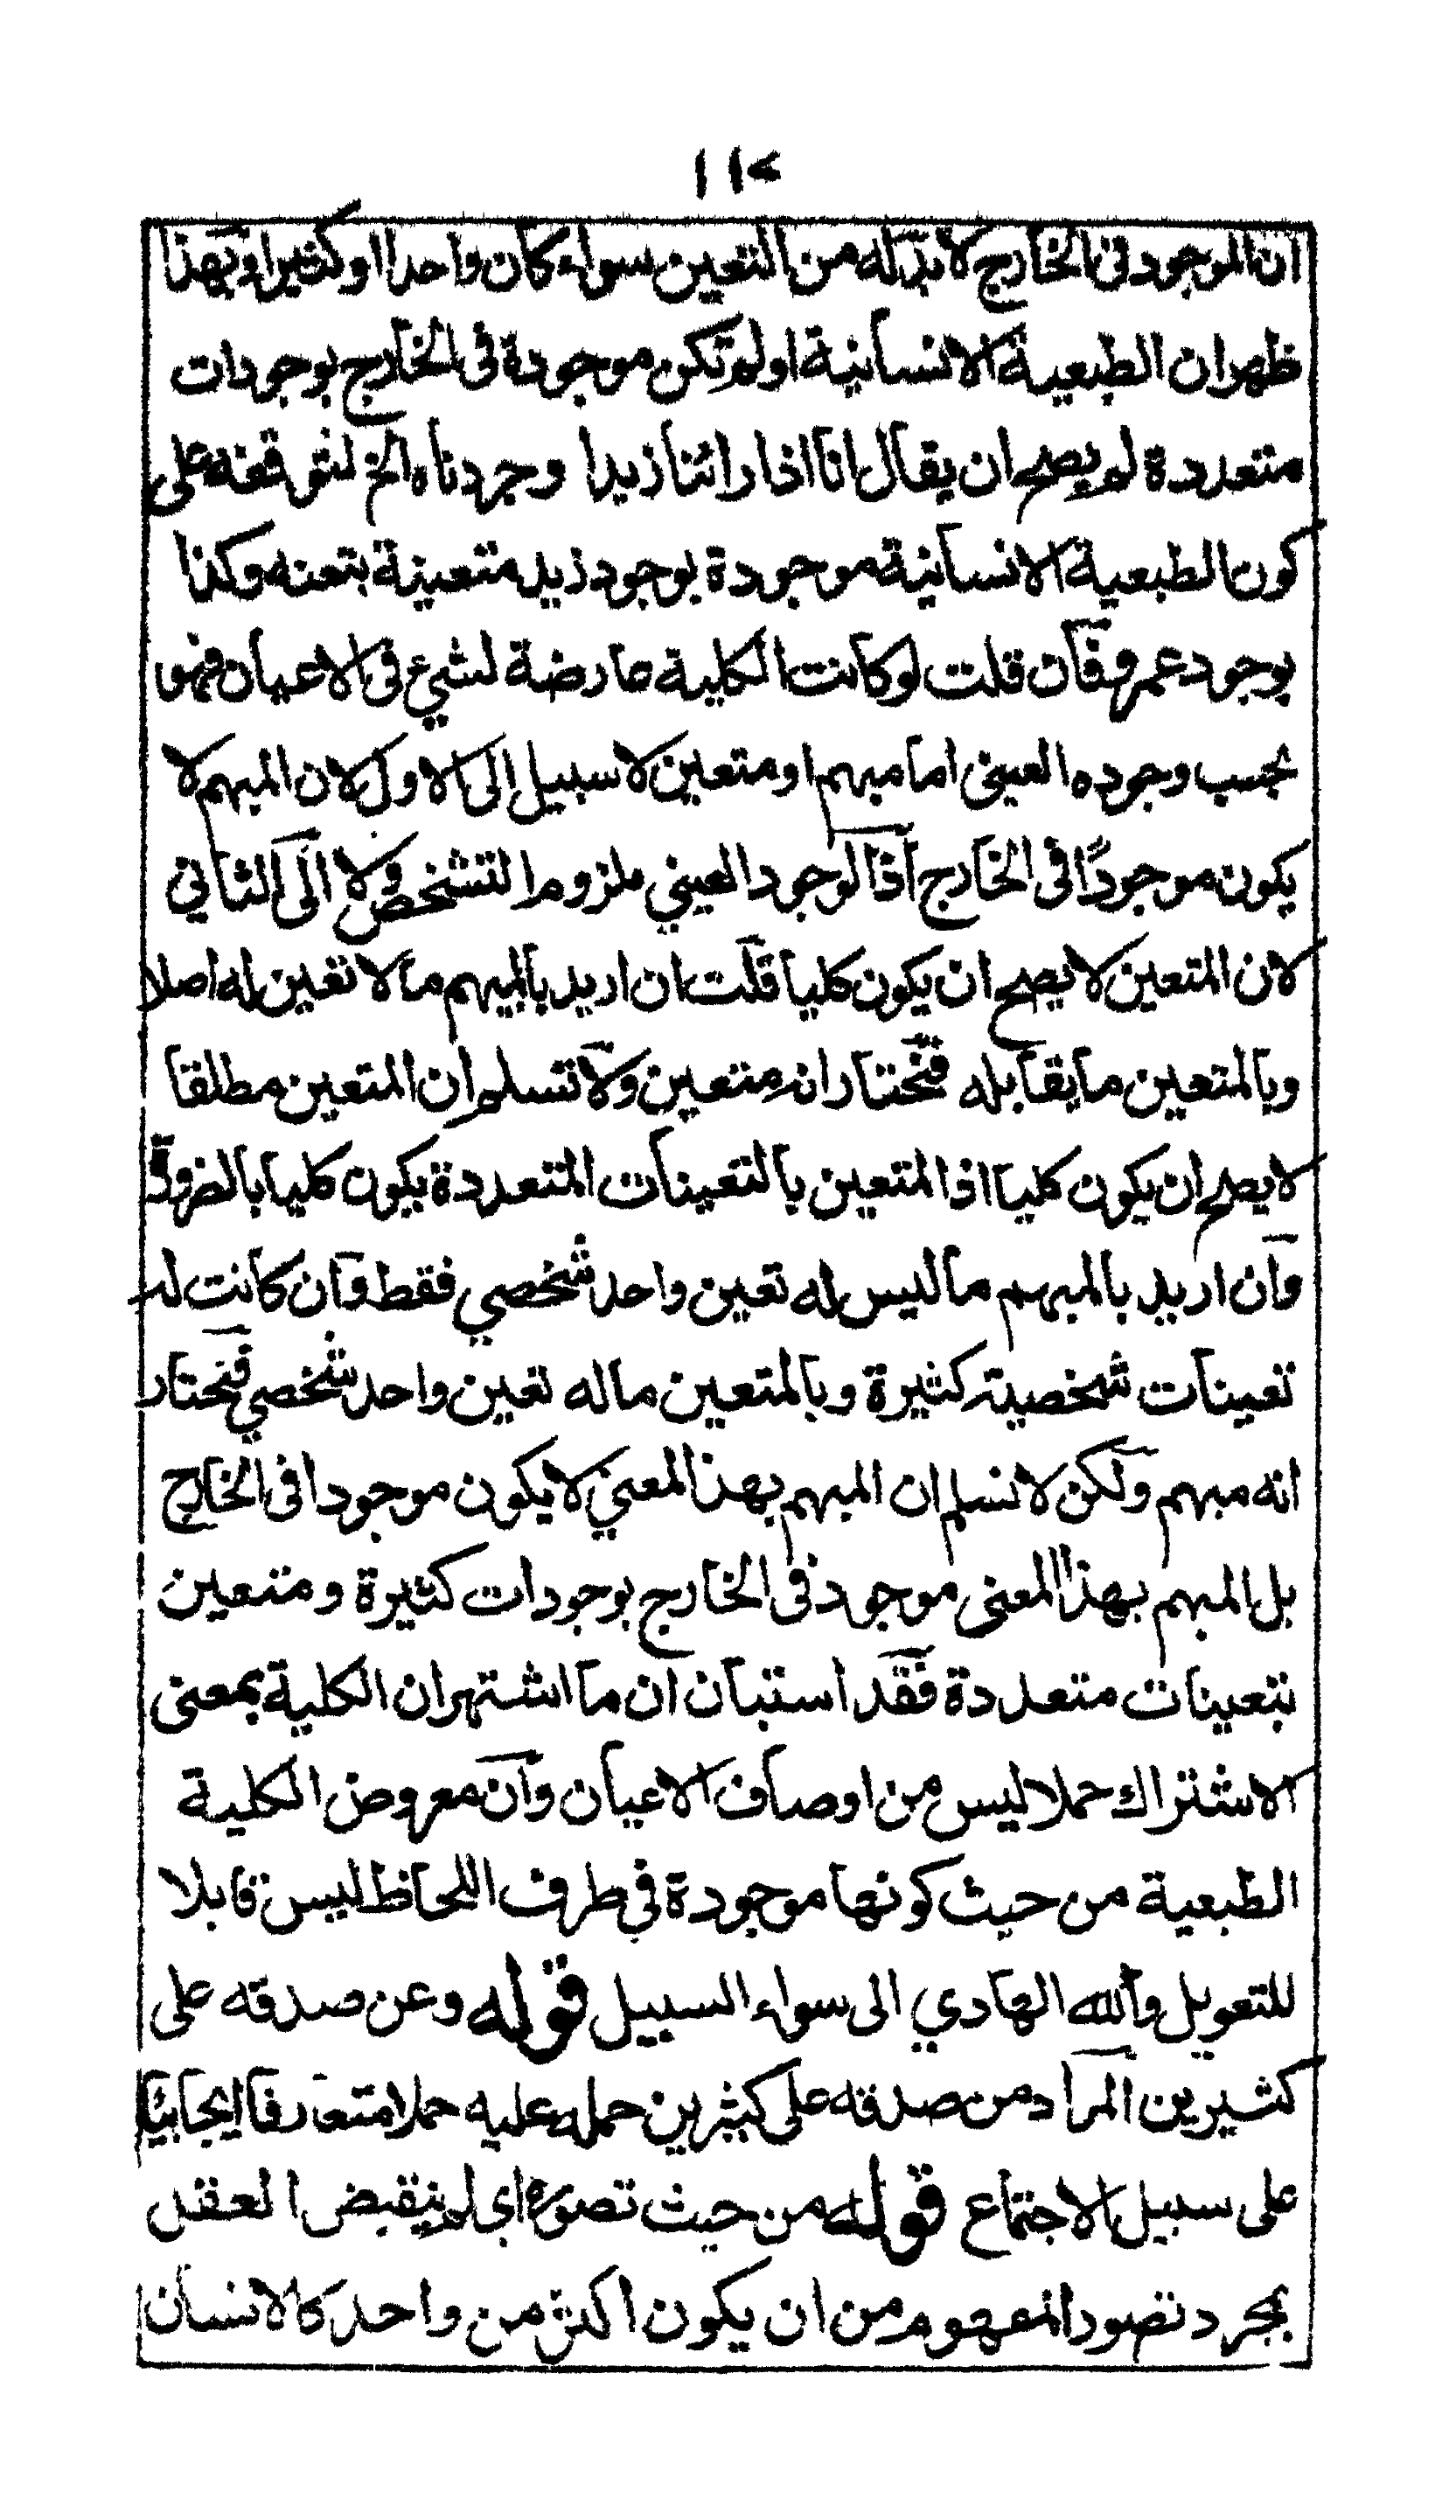 ١١٥
ان الموجود فى الخارج لا بد له من التعين سواء كان واحدا او كثيرا وبهذا
ظهر ان الطبعية الانسانية او لم تكن موجودة فى الخارج بوجودات
متعددة لم يصح ان يقال انا اذا رائنا زيدا وجردناه الخ لتوقفه على
كون الطبعية الانسانية موجودة بوجود زيد متعينة بتعنه وكذا
بوجود عمرو فان قلت لو كانت الكلية عارضة لشيء فى الاعيان فهو
بحسب وجوده العينى اما مبهم او متعين لا سبيل الى الاول لان المبهم لا
يكون موجودًا فى الخارج اذا لوجود العيني ملزوم التشخص ولا الى الثاني
لان المتعين لا يصح ان يكون كليا قلت ان اريد بالمبهم ما لا تعين له اصلا
وبالمتعين ما يقابله فنختار انه متعين ولا نسلم ان المتعين مطلقا
لا يصلح ان يكون كليا اذا المتعين بالتعينات المتعددة يكون كليا بالضرورة
وان اريد بالمبهم ما ليس له تعين واحد شخصي فقط وان كانت له
تعينات شخصية كثيرة وبالمتعين ماله تعين واحد شخصي فنختار
انه مبهم ولكن لا نسلم ان المبهم بهذا المعني لا يكون موجودا فى الخارج
بل المبهم بهذا المعنى موجود فى الخارج بوجودات كثيرة ومتعين
بتعينات متعددة فقد استبان ان ما اشتهر ان الكلية بمعنى
الاشتراك حملا ليس من اوصاف الاعيان وان معروض الكلية
الطبعية من حيث كونها موجودة في ظرف اللحاظ ليس قابلا
للتعويل والله الهادي الى سواء السبيل قوله وعن صدقه على
كثيرين المراد من صدقه على كثيرين حمله عليه حملا متعارفا ايجابيًا
على سبيل الاجتماع قوله من حيث تصوره اي لم ينقبض العقل
بمجرد تصور المفهوم من ان يكون اكثر من واحد كالانسان